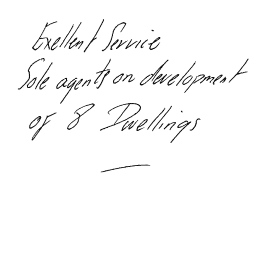 Exellent Service
Sole agents on development
of 8 Dwellings